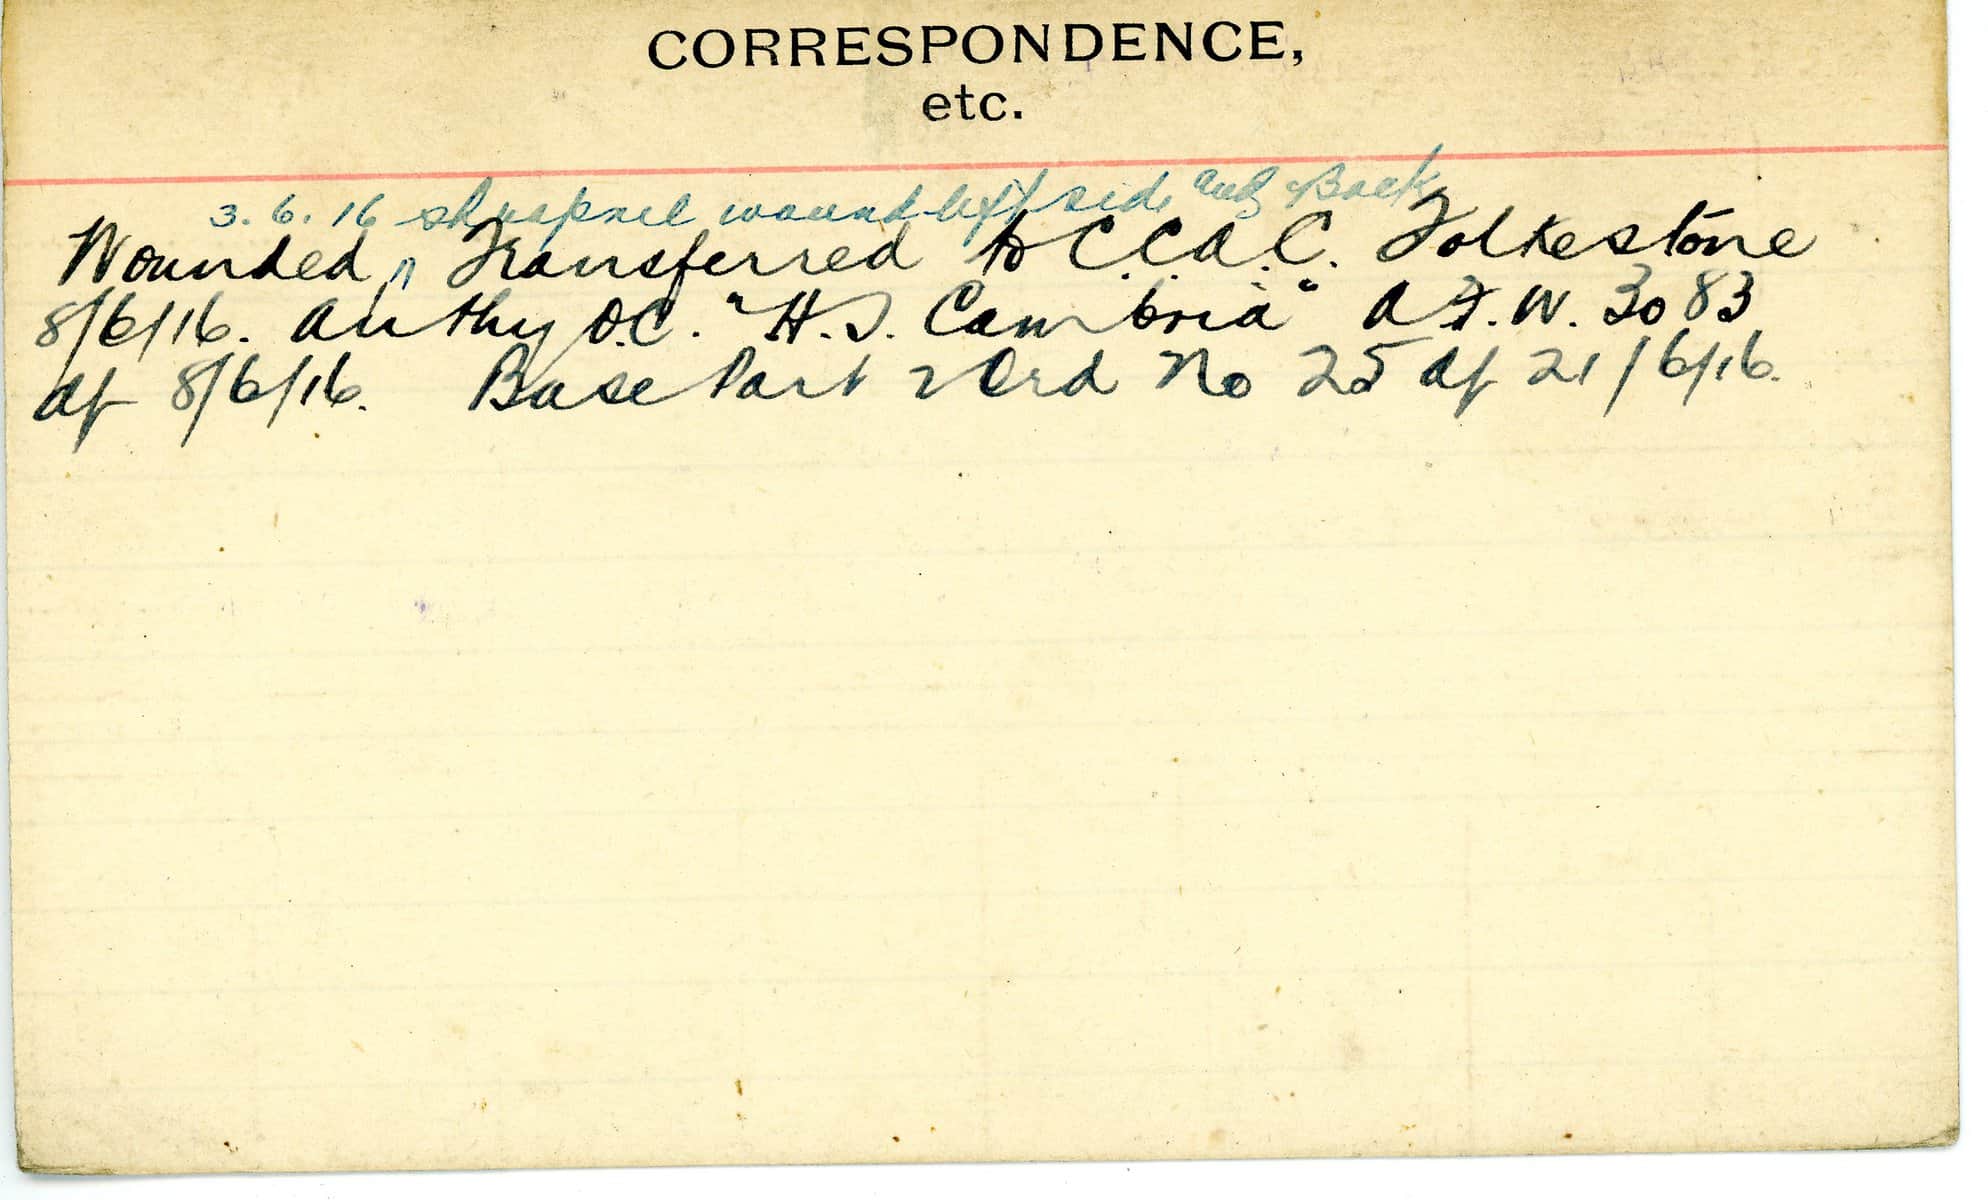 CORRESPONDENCE,
etc.
3.6.16 shrapnel wound left side and Back
Wounded, Transferred to C.C.A.C. Folkestone
8/6/16. Authy O.C. "H.S. Cambria" A.F.W. 3083
df 8/6/16. Base Part 2 Ord No 25 df 21/6/16.